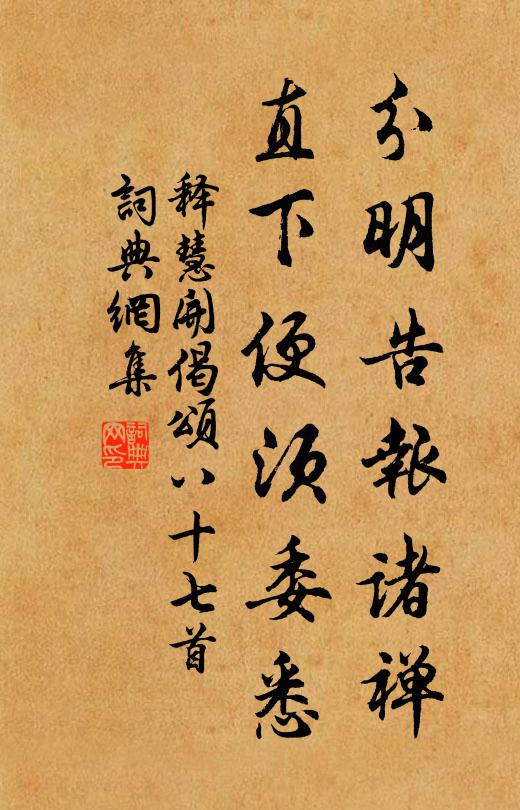 分明告報諸禅
直下便须委悉
释慧開偈頌八十七首
詞典網集
詞典网印